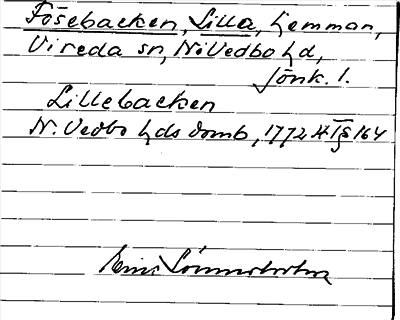 Fösebacken, Lilla, hemman,
Vireda sn, N. Vedbo hd,
Jönk. l.
Lillebacken
N. Vedbo hds domb, 1772 164